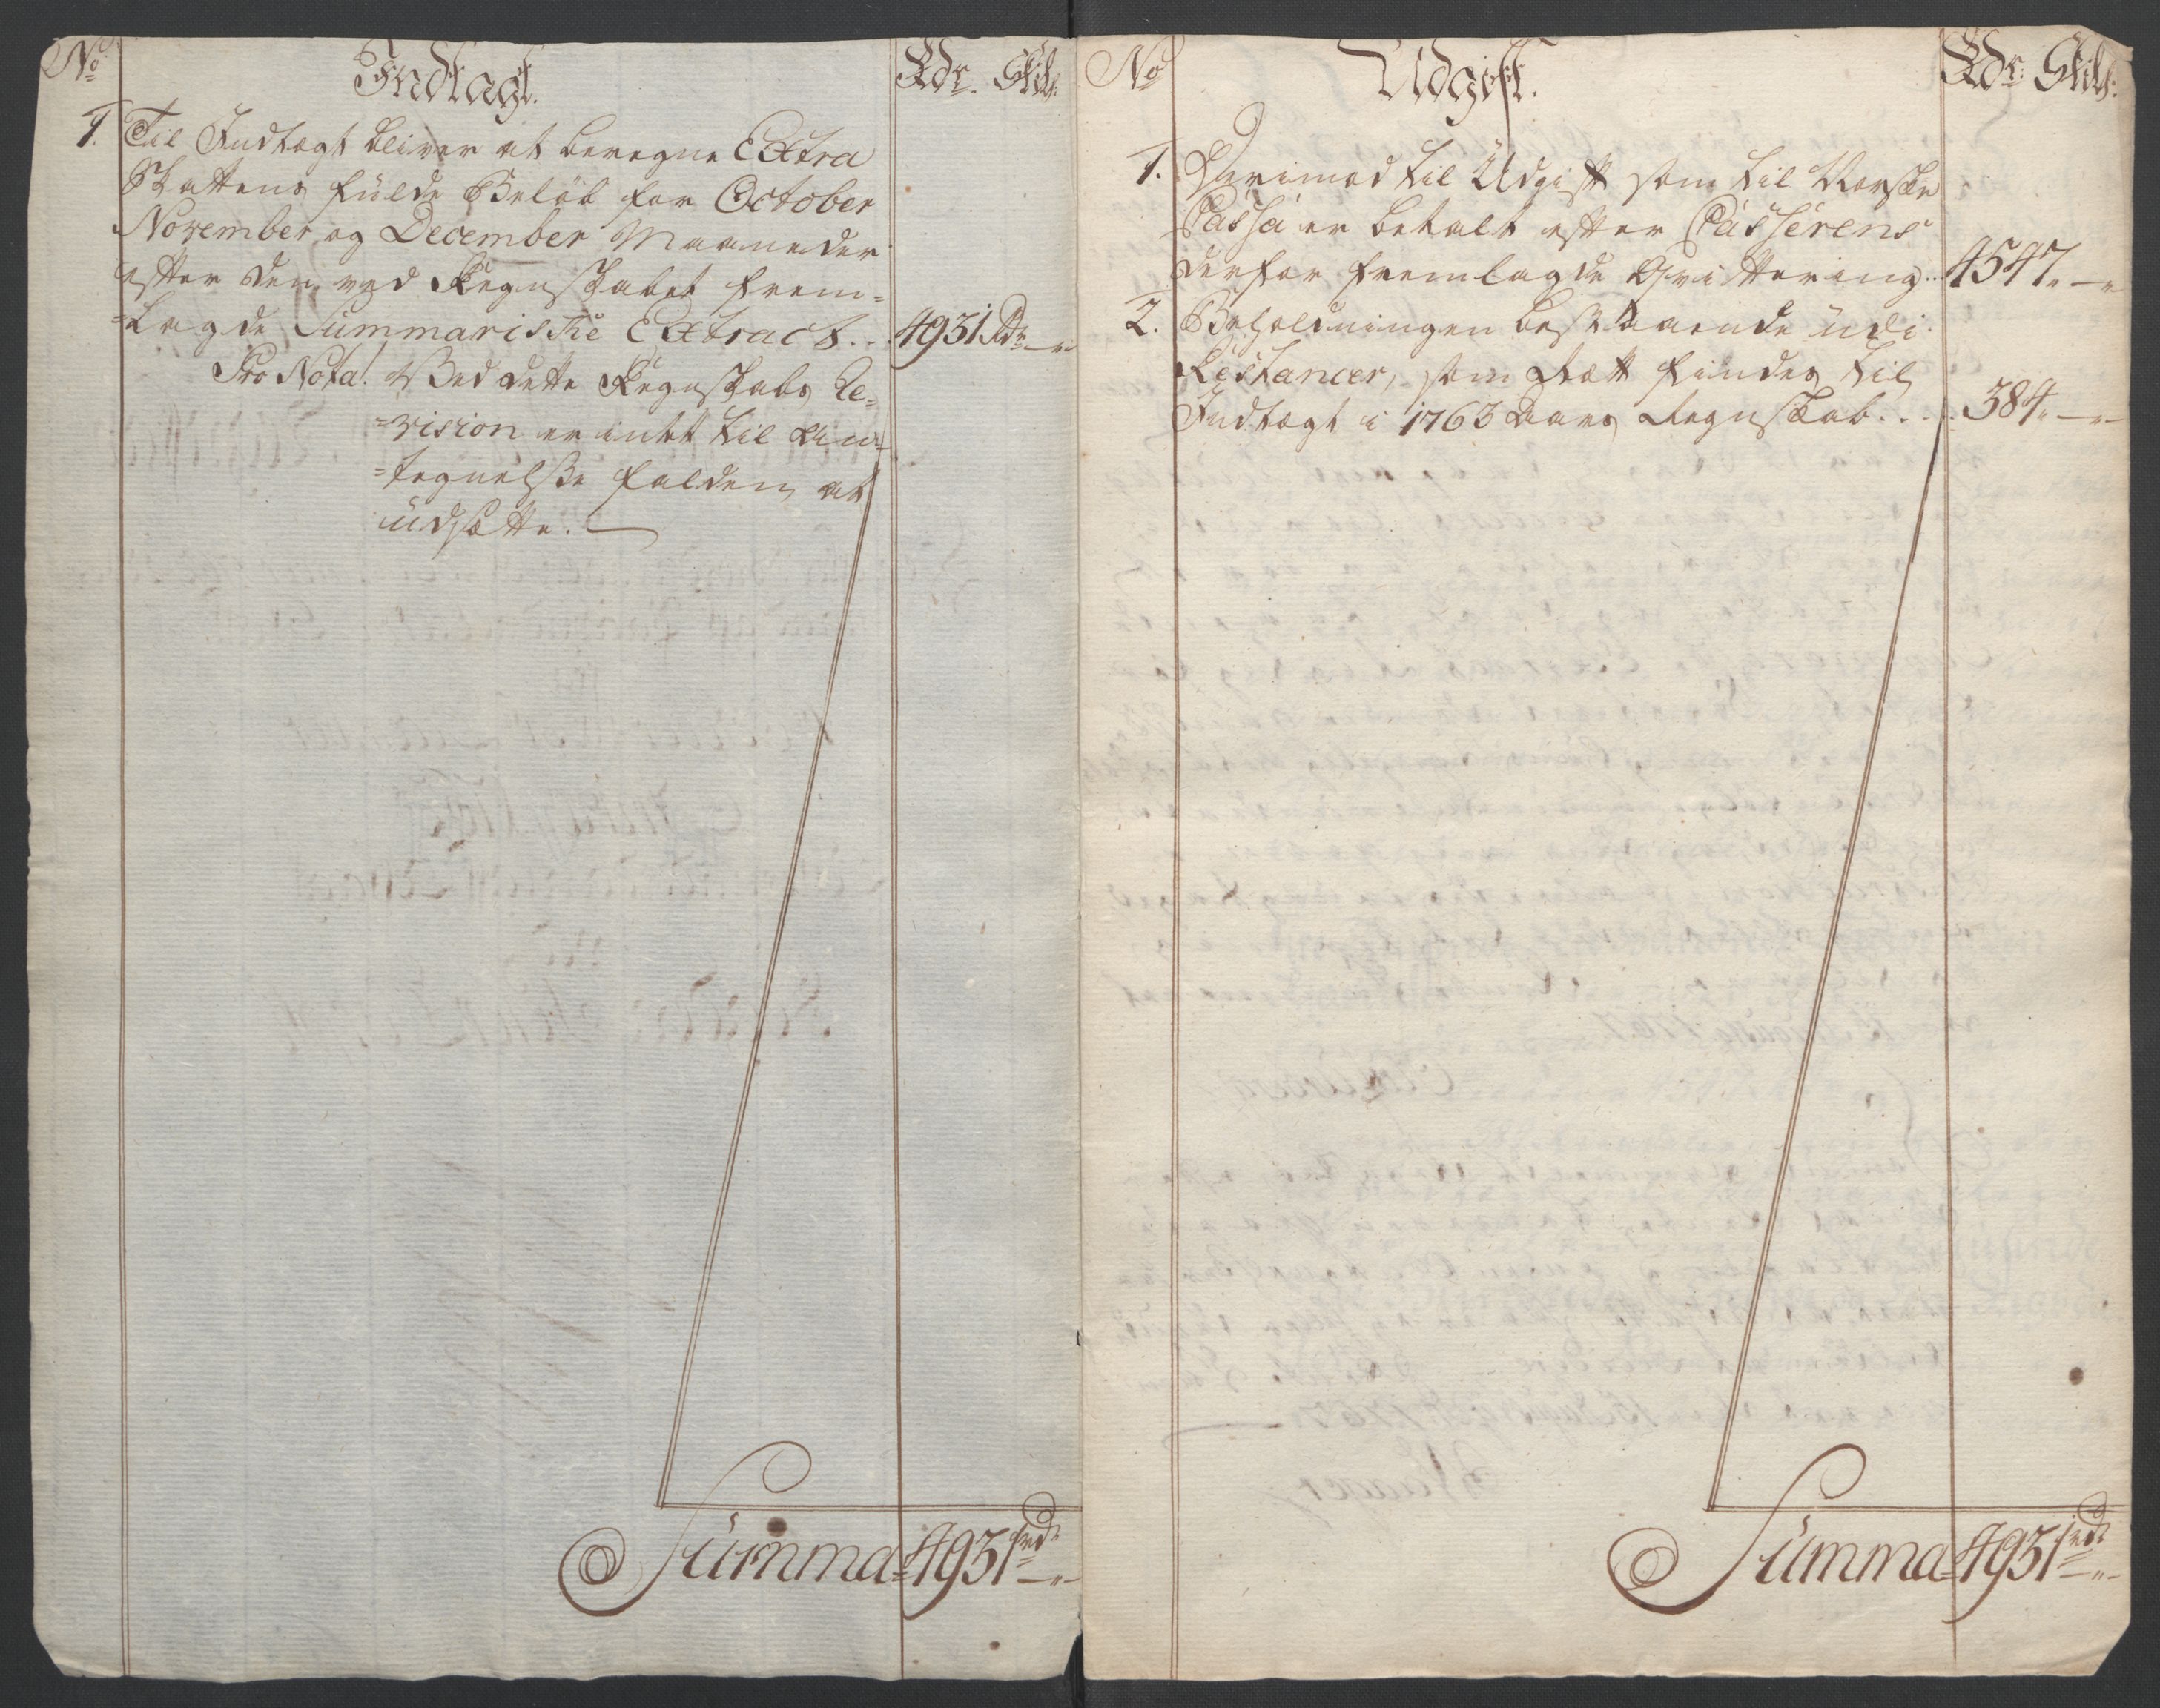 No Indtægt. Rdr. Skil:
1. Til Indtægt bliver at beregne Extra
Skattens fulde Beløb for October
November og December Maaneder
efter den ved Regnskabet frem-
-lagde Summariske Extract... 4931 Rdr —"—
Pro Nota. Ved dette Regnskabs Re-
-vision er intet til An-
-tegnelsse falden at
udsætte. —
Summa 4931 rdr —"—
No Udgift. Rdr: Skil:
1. Derimod til Udgift som til Norske
Cassa er betalt efter Casserens
derfor fremlagde Qvittering.. 4547„ —„
2. Beholdningen bestaaende udi
Restancer, som Rætt findes til
Indtægt i 1763 Aars Regnskab.... 384„ —„—
Summa 4931 rdr —"—